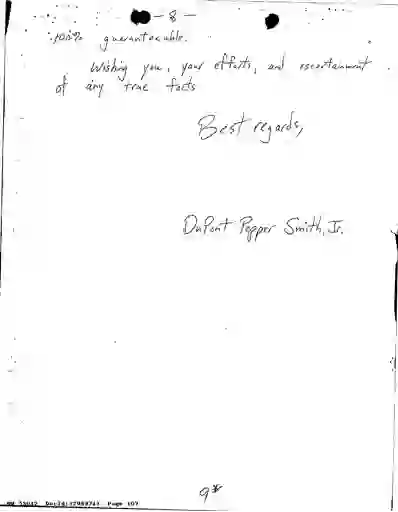 - 8 -
100% guaranteeable.
Wishing you, your efforts, and ascertainment
of any true facts
Best regards,
DuPont Pepper Smith, Jr.
9*
Page 107